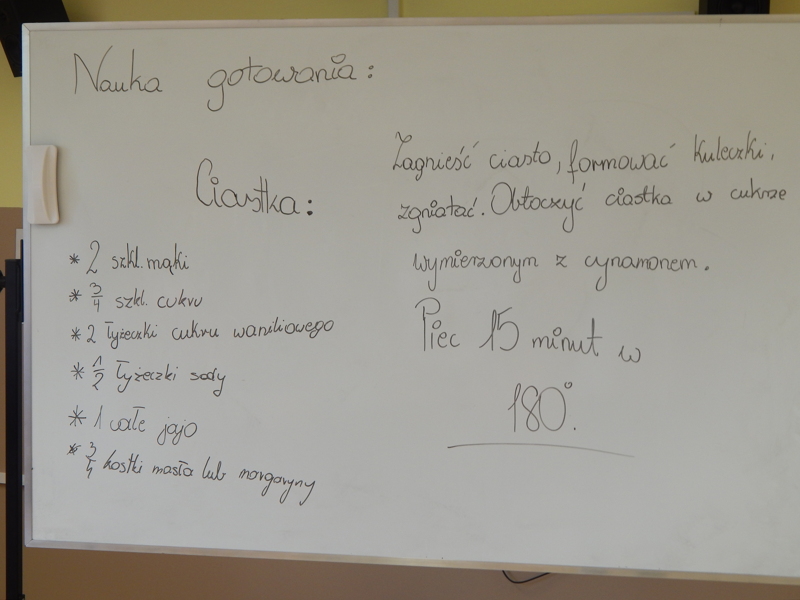 Nauka gotowania:
Ciastka:
* 2 szkl. mąki
* 3/4 szkl. cukru
* 2 łyżeczki cukru waniliowego
* 1/2 łyżeczki sody
* 1 całe jajo
* 3/4 kostki masła lub margaryny
Zagnieść ciasto, formować kuleczki,
zgniatać. Obtoczyć ciastka w cukrze
wymierzonym z cynamonem.
Piec 15 minut w
180°.